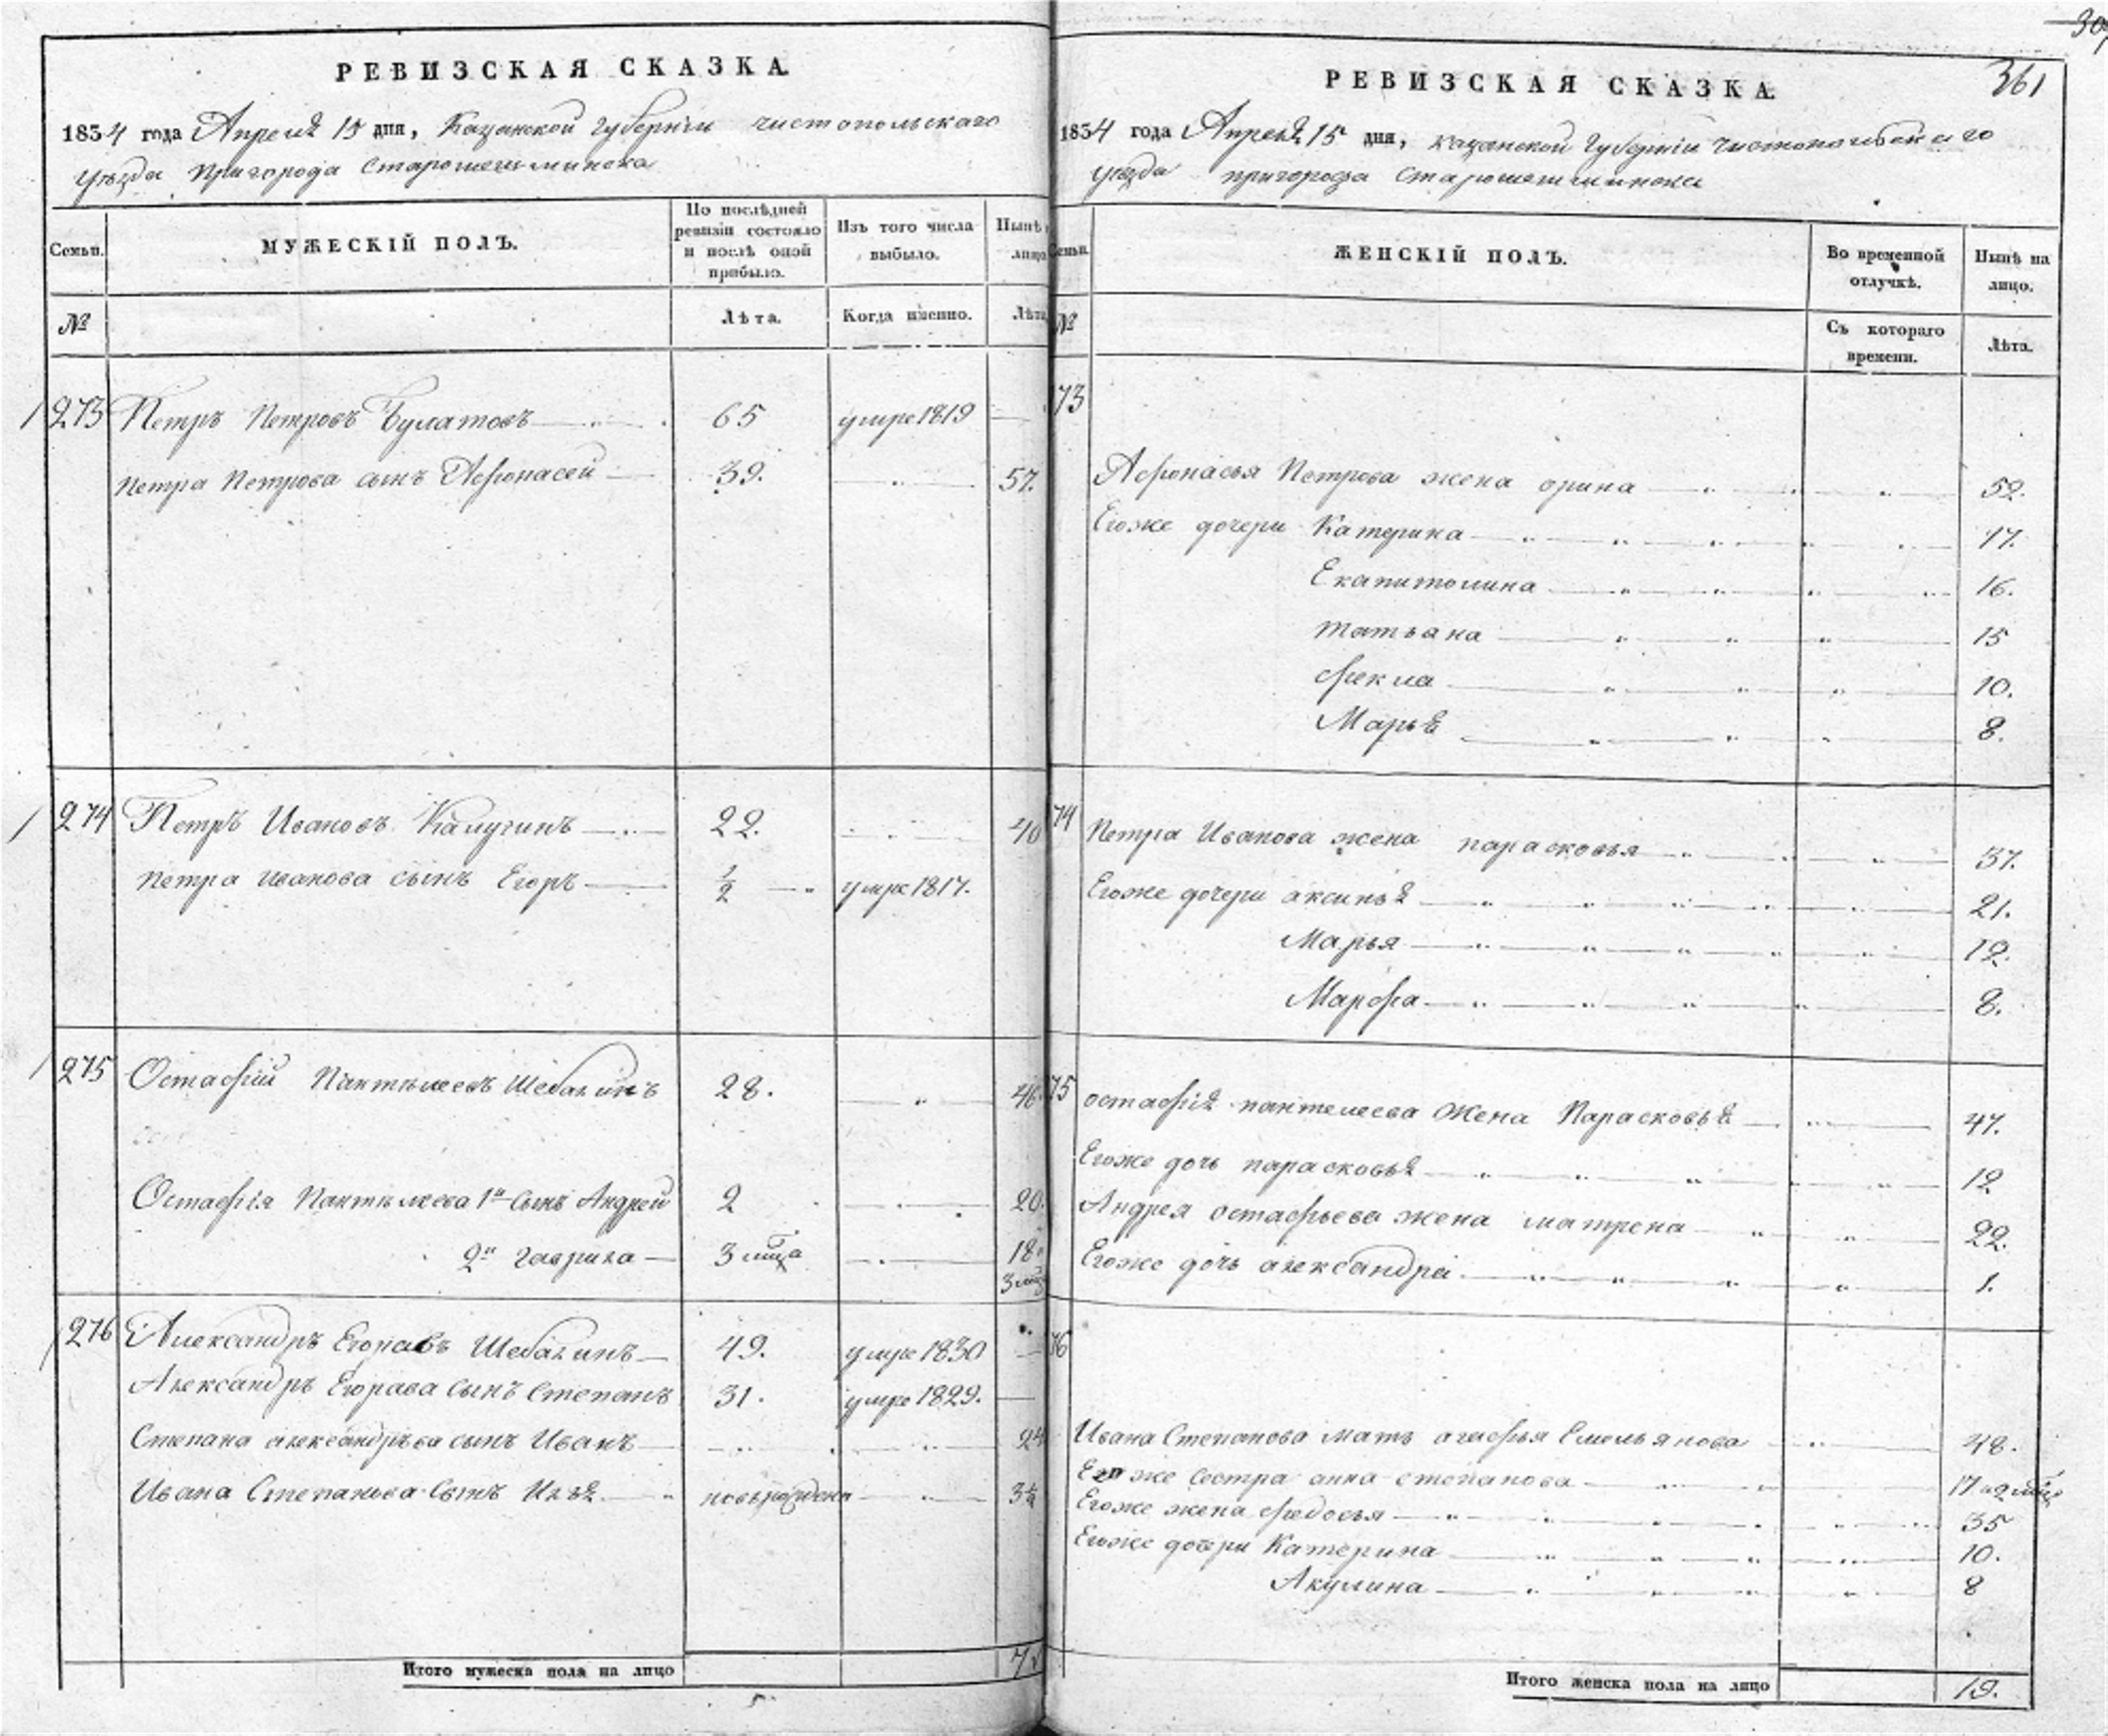 РЕВИЗСКАЯ СКАЗКА.
1834 года Апреля 15 дня, Казанской Губернiи чистопольскаго
уезда Пригорода Старошешминска
Семьи.
МУЖЕСКIЙ ПОЛЪ.
По послѣдней ревизiи состояло и послѣ оной прибыло.
Изъ того числа выбыло.
Нынѣ лицо
№
Лѣта.
Когда именно.
Лѣта
273 Петръ Петровъ Булатовъ 65 умре 1819
Петра Петрова сынъ Афонасей 39. 57.
274 Петръ Ивановъ Калугинъ 22. 40
Петра Иванова сынъ Егоръ 1/2 умре 1817.
275 Остафiй Пантѣлеевъ Шебалинъ 28. 46.
Остафiя Пантѣлеева 1й сынъ Андрей 2 20.
2й гаврила 3 мца 18.
3 мца
276 Александръ Егоровъ Шебалинъ 49. умре 1830
Александръ Егорава сынъ Степанъ 31. умре 1829.
Степана александрова сынъ Иванъ 24
Ивана Степанова сынъ новърожденъ
Итого мужеска пола на лицо 7
361
РЕВИЗСКАЯ СКАЗКА.
1834 года Апреля 15 дня, казанской Губернiи Чистопольскаго
уезда пригорода Старошешминска
Семьи.
ЖЕНСКIЙ ПОЛЪ.
Во временной отлучкѣ.
Нынѣ на лицо.
№
Съ котораго времени.
Лѣта.
73
Афонасья Петрова жена орина 52.
Егоже дочери Катерина 17.
Екапитолина 16.
татьана 15
фекла 10.
Марья 8.
74 Петра Иванова жена парасковья 37.
Егоже дочери аксинья 21.
Марья 12.
Марфа 8.
75 остафiя пантелеева жена Парасковья 47.
Егоже дочь парасковья 12
Андрея остафьева жена матрена 22.
Егоже дочь александра 1.
76
Ивана Степанова мать агафья Емельянова 48.
Егоже сестра анна степанова 17
Егоже жена федосья 35
Егоже дочери Катерина 10.
Акулина 8
Итого женска пола на лицо 19.